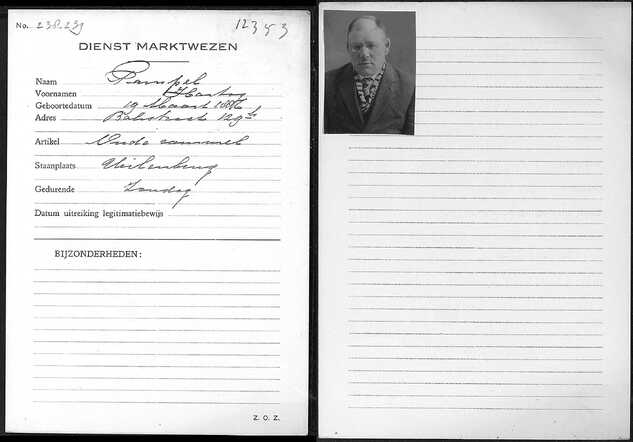 No. 238.239 12353
DIENST MARKTWEZEN
Naam Rampel
Voornamen Hartog
Geboortedatum 19 Maart 1886
Adres 129
Artikel Oude rommel
Staanplaats Uilenburg
Gedurende Zondag
Datum uitreiking legitimatiebewijs
BIJZONDERHEDEN:
Z. O. Z.